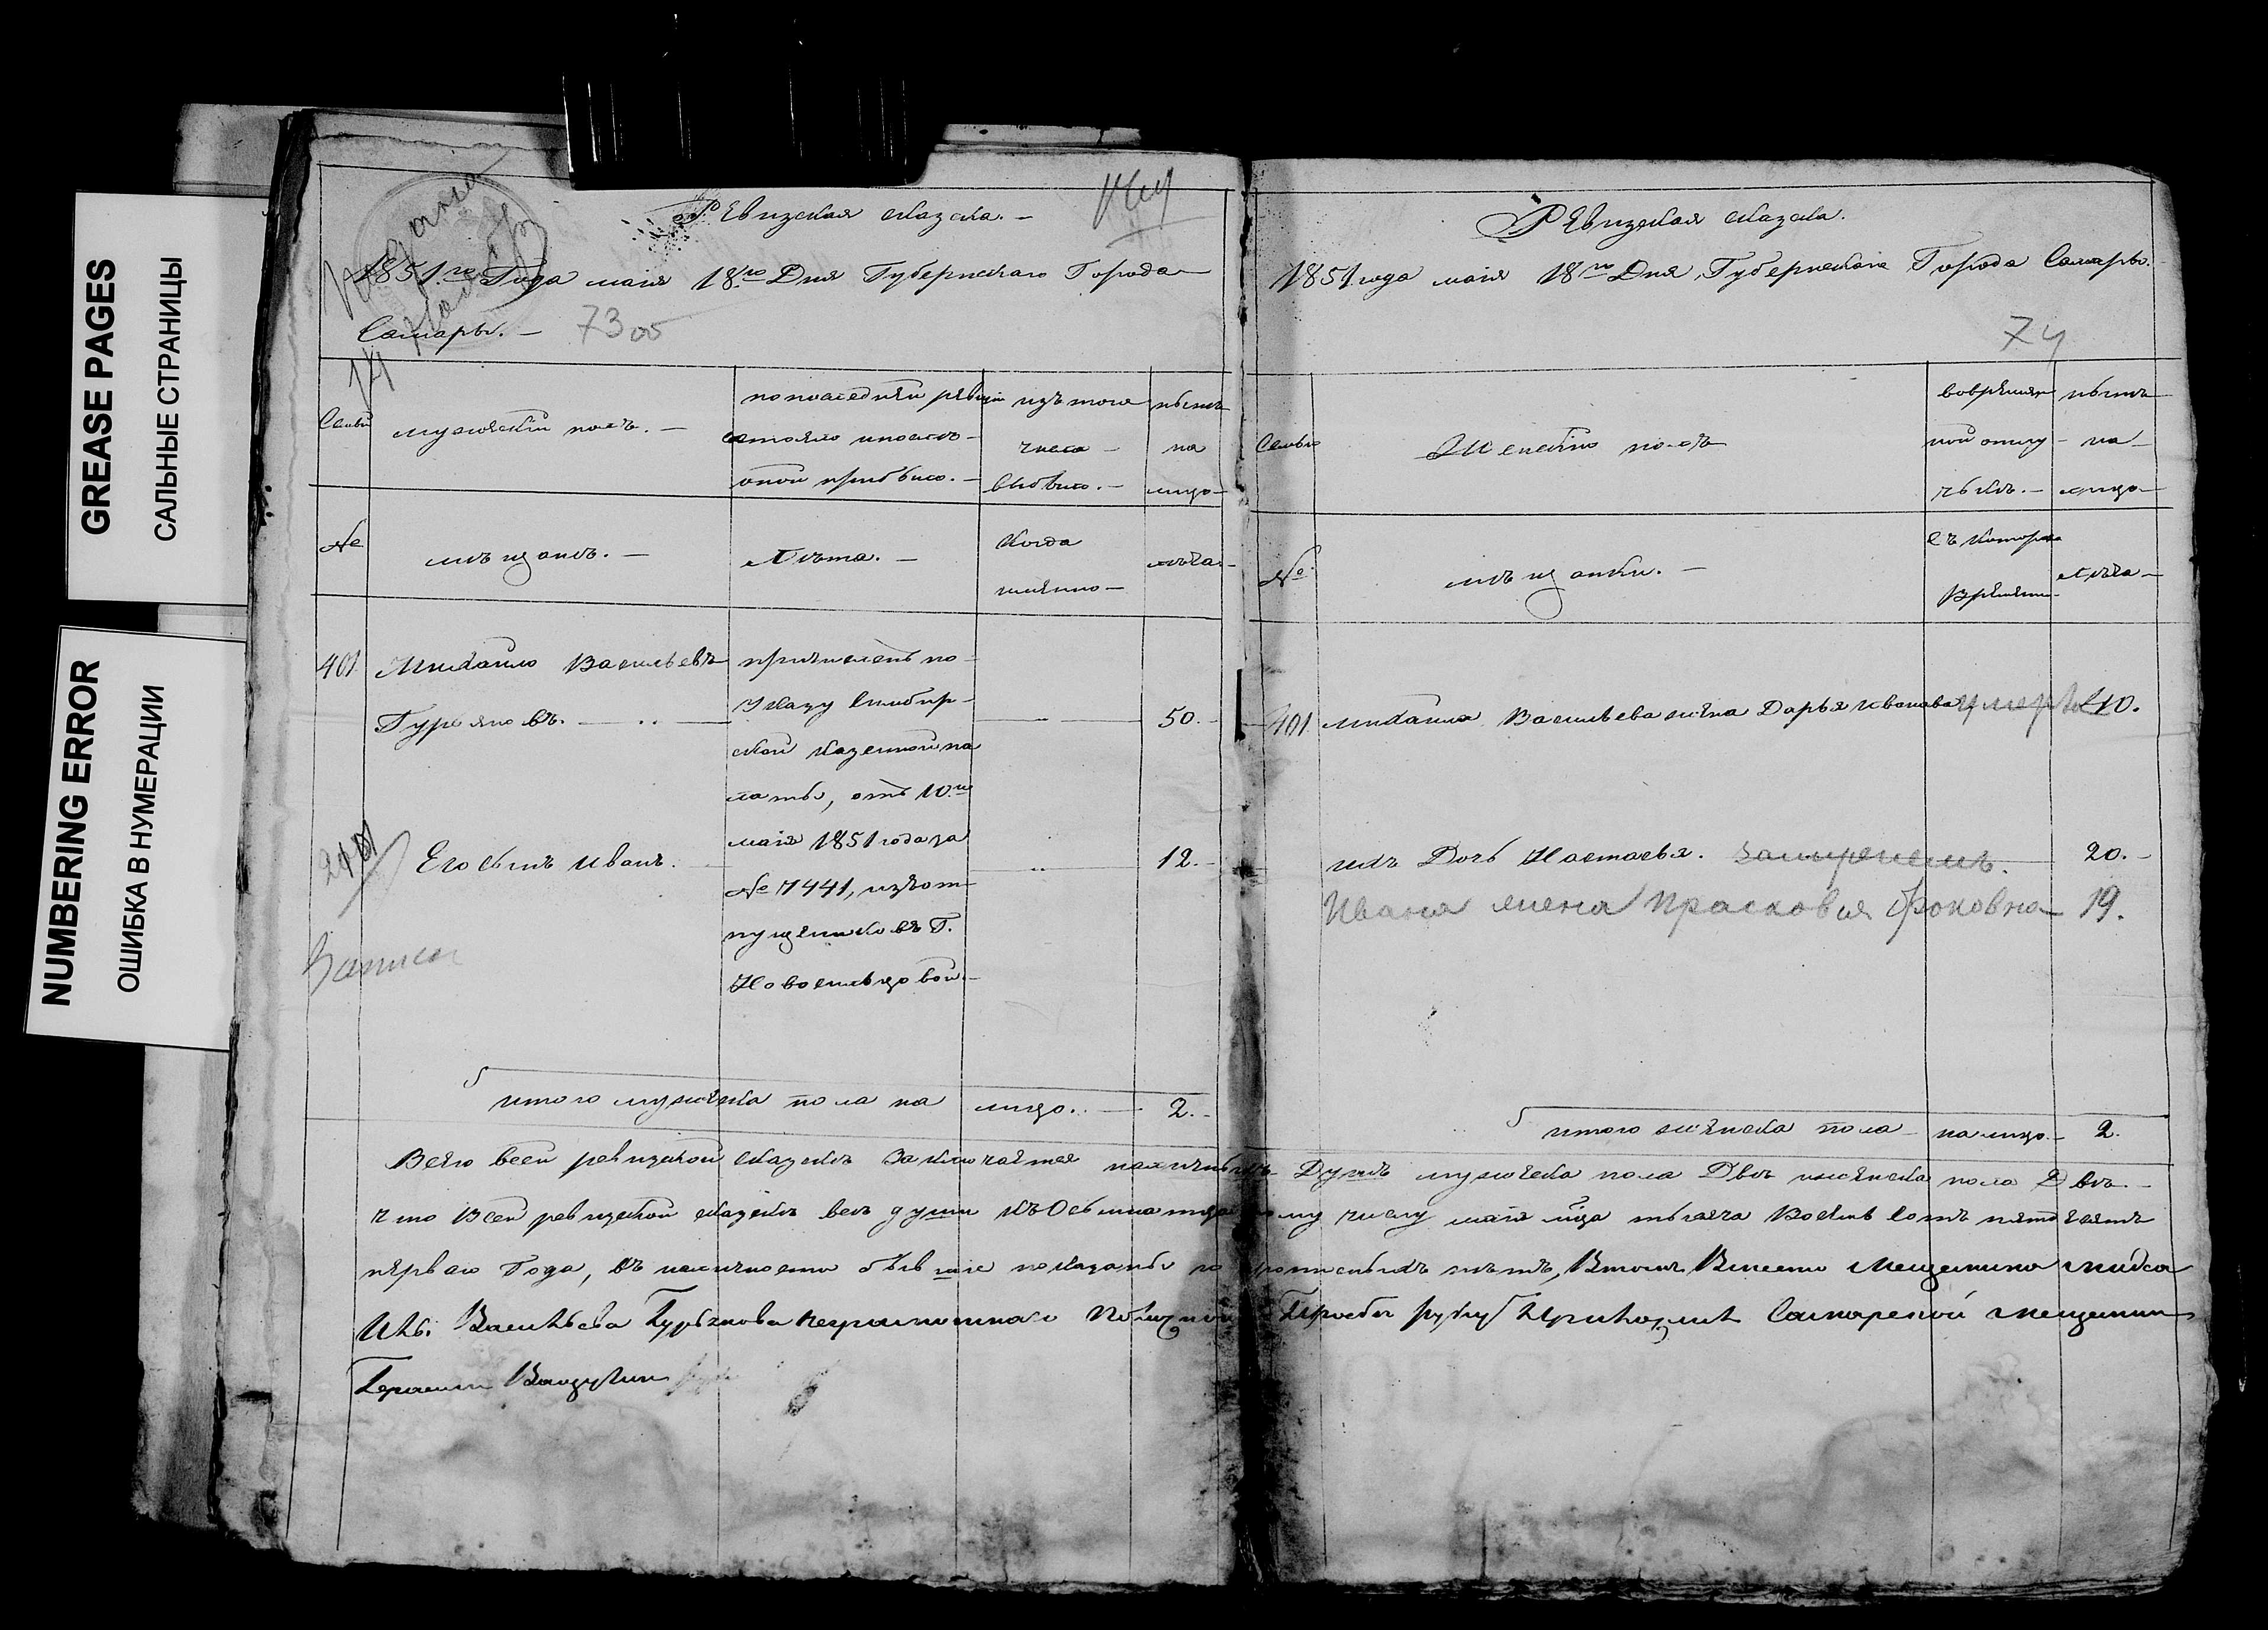 GREASE PAGES
САЛЬНЫЕ СТРАНИЦЫ
NUMBERING ERROR
ОШИБКА В НУМЕРАЦИИ
Ревизская сказка. –
1851го Года маія 18го Дня Губернскаго Города
Самары. – 73 об
Семьи
мужескій полъ. –
по последней ревизіи
состояло и после
оной прибыло. –
изъ того
числа –
выбыло. –
ныне
на
лицо –
№
мещане. –
Лета. –
Когда
имянно –
лета –
401 Михайло Васильевъ
Гурьяновъ. –
причисленъ по
указу Симбир-
ской казенной па
латы, отъ 10го
маія 1851 года за
№ 7441, изъ от
пущенниковъ Г.
Новосильцовой. –
50. –
Его сынъ Иванъ. 12. –
итого мужеска пола на лицо. – 2. –
Ревизская сказка.
1851 года маія 18го Дня, Губернскаго Города Самары.
74
Семьи
Женскій полъ
во времян
ной отлу-
чке. –
ныне
на
лицо –
№
мещанки. –
съ котораго
времяни –
Лета –
401 Михайла Васильева жена Дарья Иванова умерла 40.
ихъ Дочь Настасья. замужемъ. 20. –
Ивана жена Прасковья Фоковна 19.
итого женска пола на лицо – 2.
Всего в сей ревизской сказке заключается наличныхъ Душъ мужеска пола Две женска пола Две. –
что в сей ревизской сказке все души къ Осьмнадцатому числу маія мца тысяча Восемь сотъ пятдесятъ
перваго Года, въ наличности бывшие показаны и прописныхъ нетъ, Втомъ Вместо мещанина михаи
Васильева Гурьянова неграмотнаго По личной Просьбе руку Приложилъ Самарской мещанин
Герасим